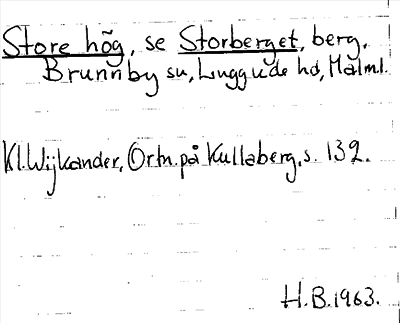 Store hög, se Storberget, berg.
Brunnby sn, Luggude hd, Malml.
Kl. Wijkander, Ortn. på Kullaberg, s. 132.
H.B. 1963.